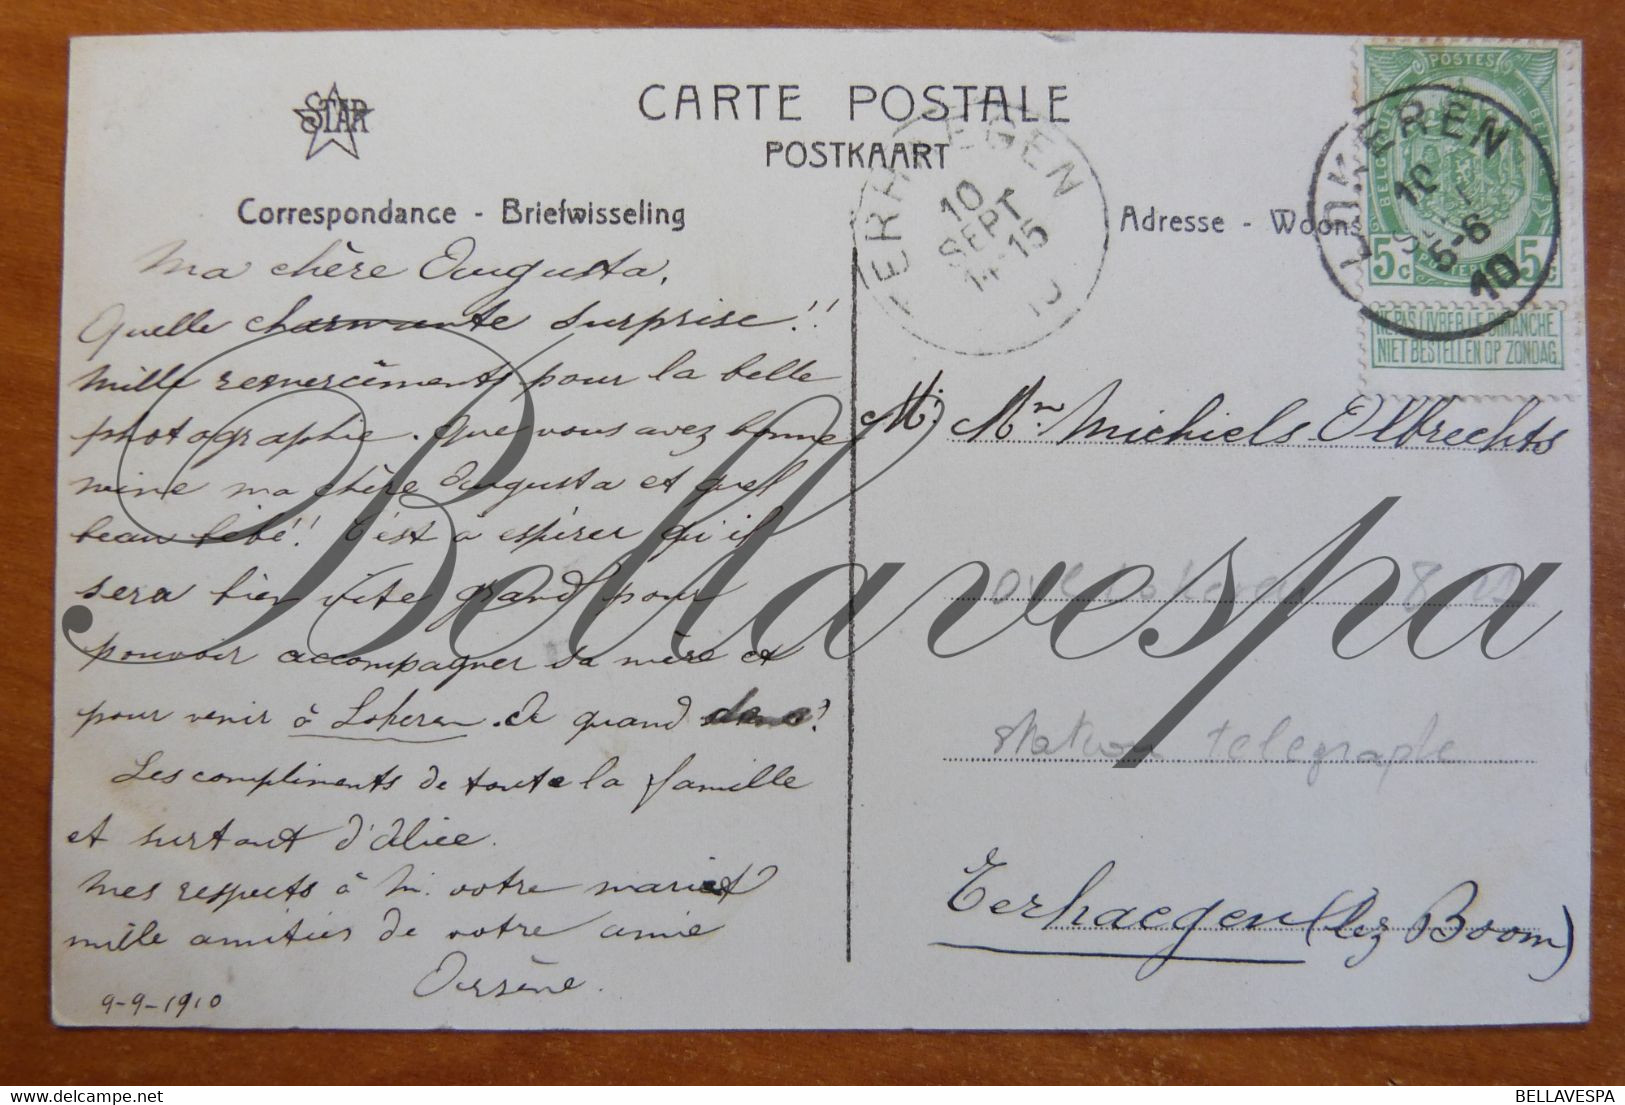 STAR
CARTE POSTALE
POSTKAART
Correspondance - Briefwisseling
Adresse - Woons
ERHAEGEN
10
SEPT
14-15
10
POSTES
LOKEREN
10
5-6
10
5c 5c
NE PAS LIVRER LE DIMANCHE
NIET BESTELLEN OP ZONDAG
Ma chère Augusta,
Quelle charmante surprise!!
Mille remercîments pour la belle
photographie. Que vous avez bonne
mine ma chère Augusta et quel
beau bébé!! C'est à espérer qu'il
sera bien vite grand pour
pouvoir accompagner sa mère et
pour venir à Lokeren. A quand donc?
Les compliments de toute la famille
et surtout d'Alice.
Mes respects à M. votre mari et
mille amitiés de votre amie
Arsène.
9-9-1910
M. Mme Michiels Olbrechts
station telegraphe
Terhaegen (lez Boom)
Bellavespa
BELLAVESPA